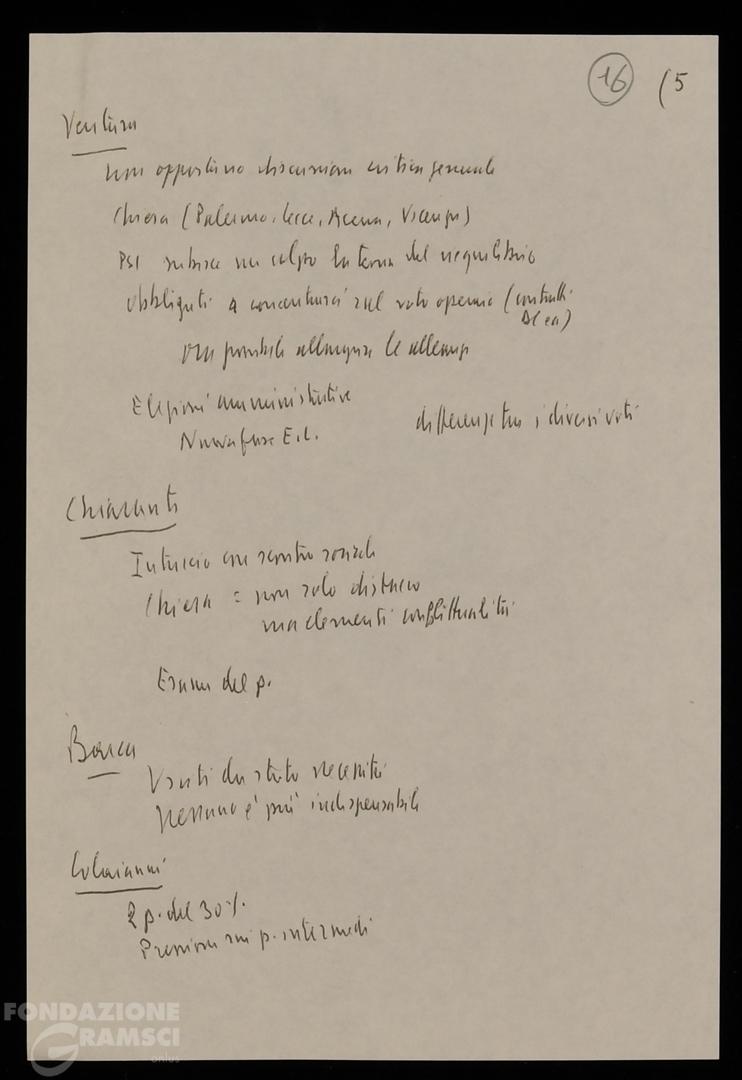 16 (5
Ventura
non opportuno discussione critica generale
Chiesa (Palermo, Lecce, Acerra, Vicenza)
PSI subisce un colpo la teoria del riequilibrio
Obbligati a concentrarci sul voto operaio (contratti
possibile allargare le alleanze
Elezioni amministrative
Nuova fase E.L.
differenze tra i diversi voti
Chiarante
Intreccio con scontro sociale
Chiesa = non solo distacco
ma elementi conflittualità
Esame del p.
Barca
Usciti da stato necessità
Nessuno è più indispensabile
Colajanni
2 p. del 30%.
Pressione sui p. intermedi
FONDAZIONE
GRAMSCI
onlus